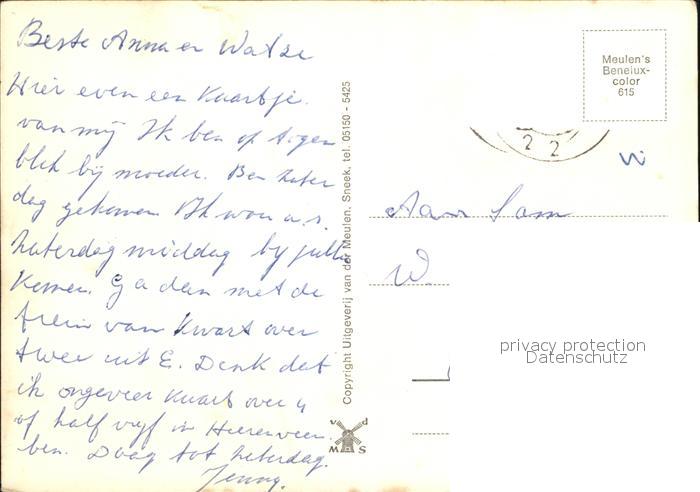 Beste Anna en Watze
Hier even een Kaartje.
van mij Ik ben op 't ogen
blik bij moeder. Ben zater
dag gekomen Ik wou a.s.
Zaterdag middag by jullie
Komen. Ga dan met de
trein van Kwart over
twee uit E. Denk dat
ik ongeveer Kwart over 4
of half vyf in Heerenveen.
ben. Daag tot Zaterdag.
Jenny.
Copyright Uitgeverij van der Meulen, Sneek, tel. 05150 - 5425
v d
M S
Meulen's
Benelux-
color
615
2 2
Aan Fam
W.
privacy protection
Datenschutz